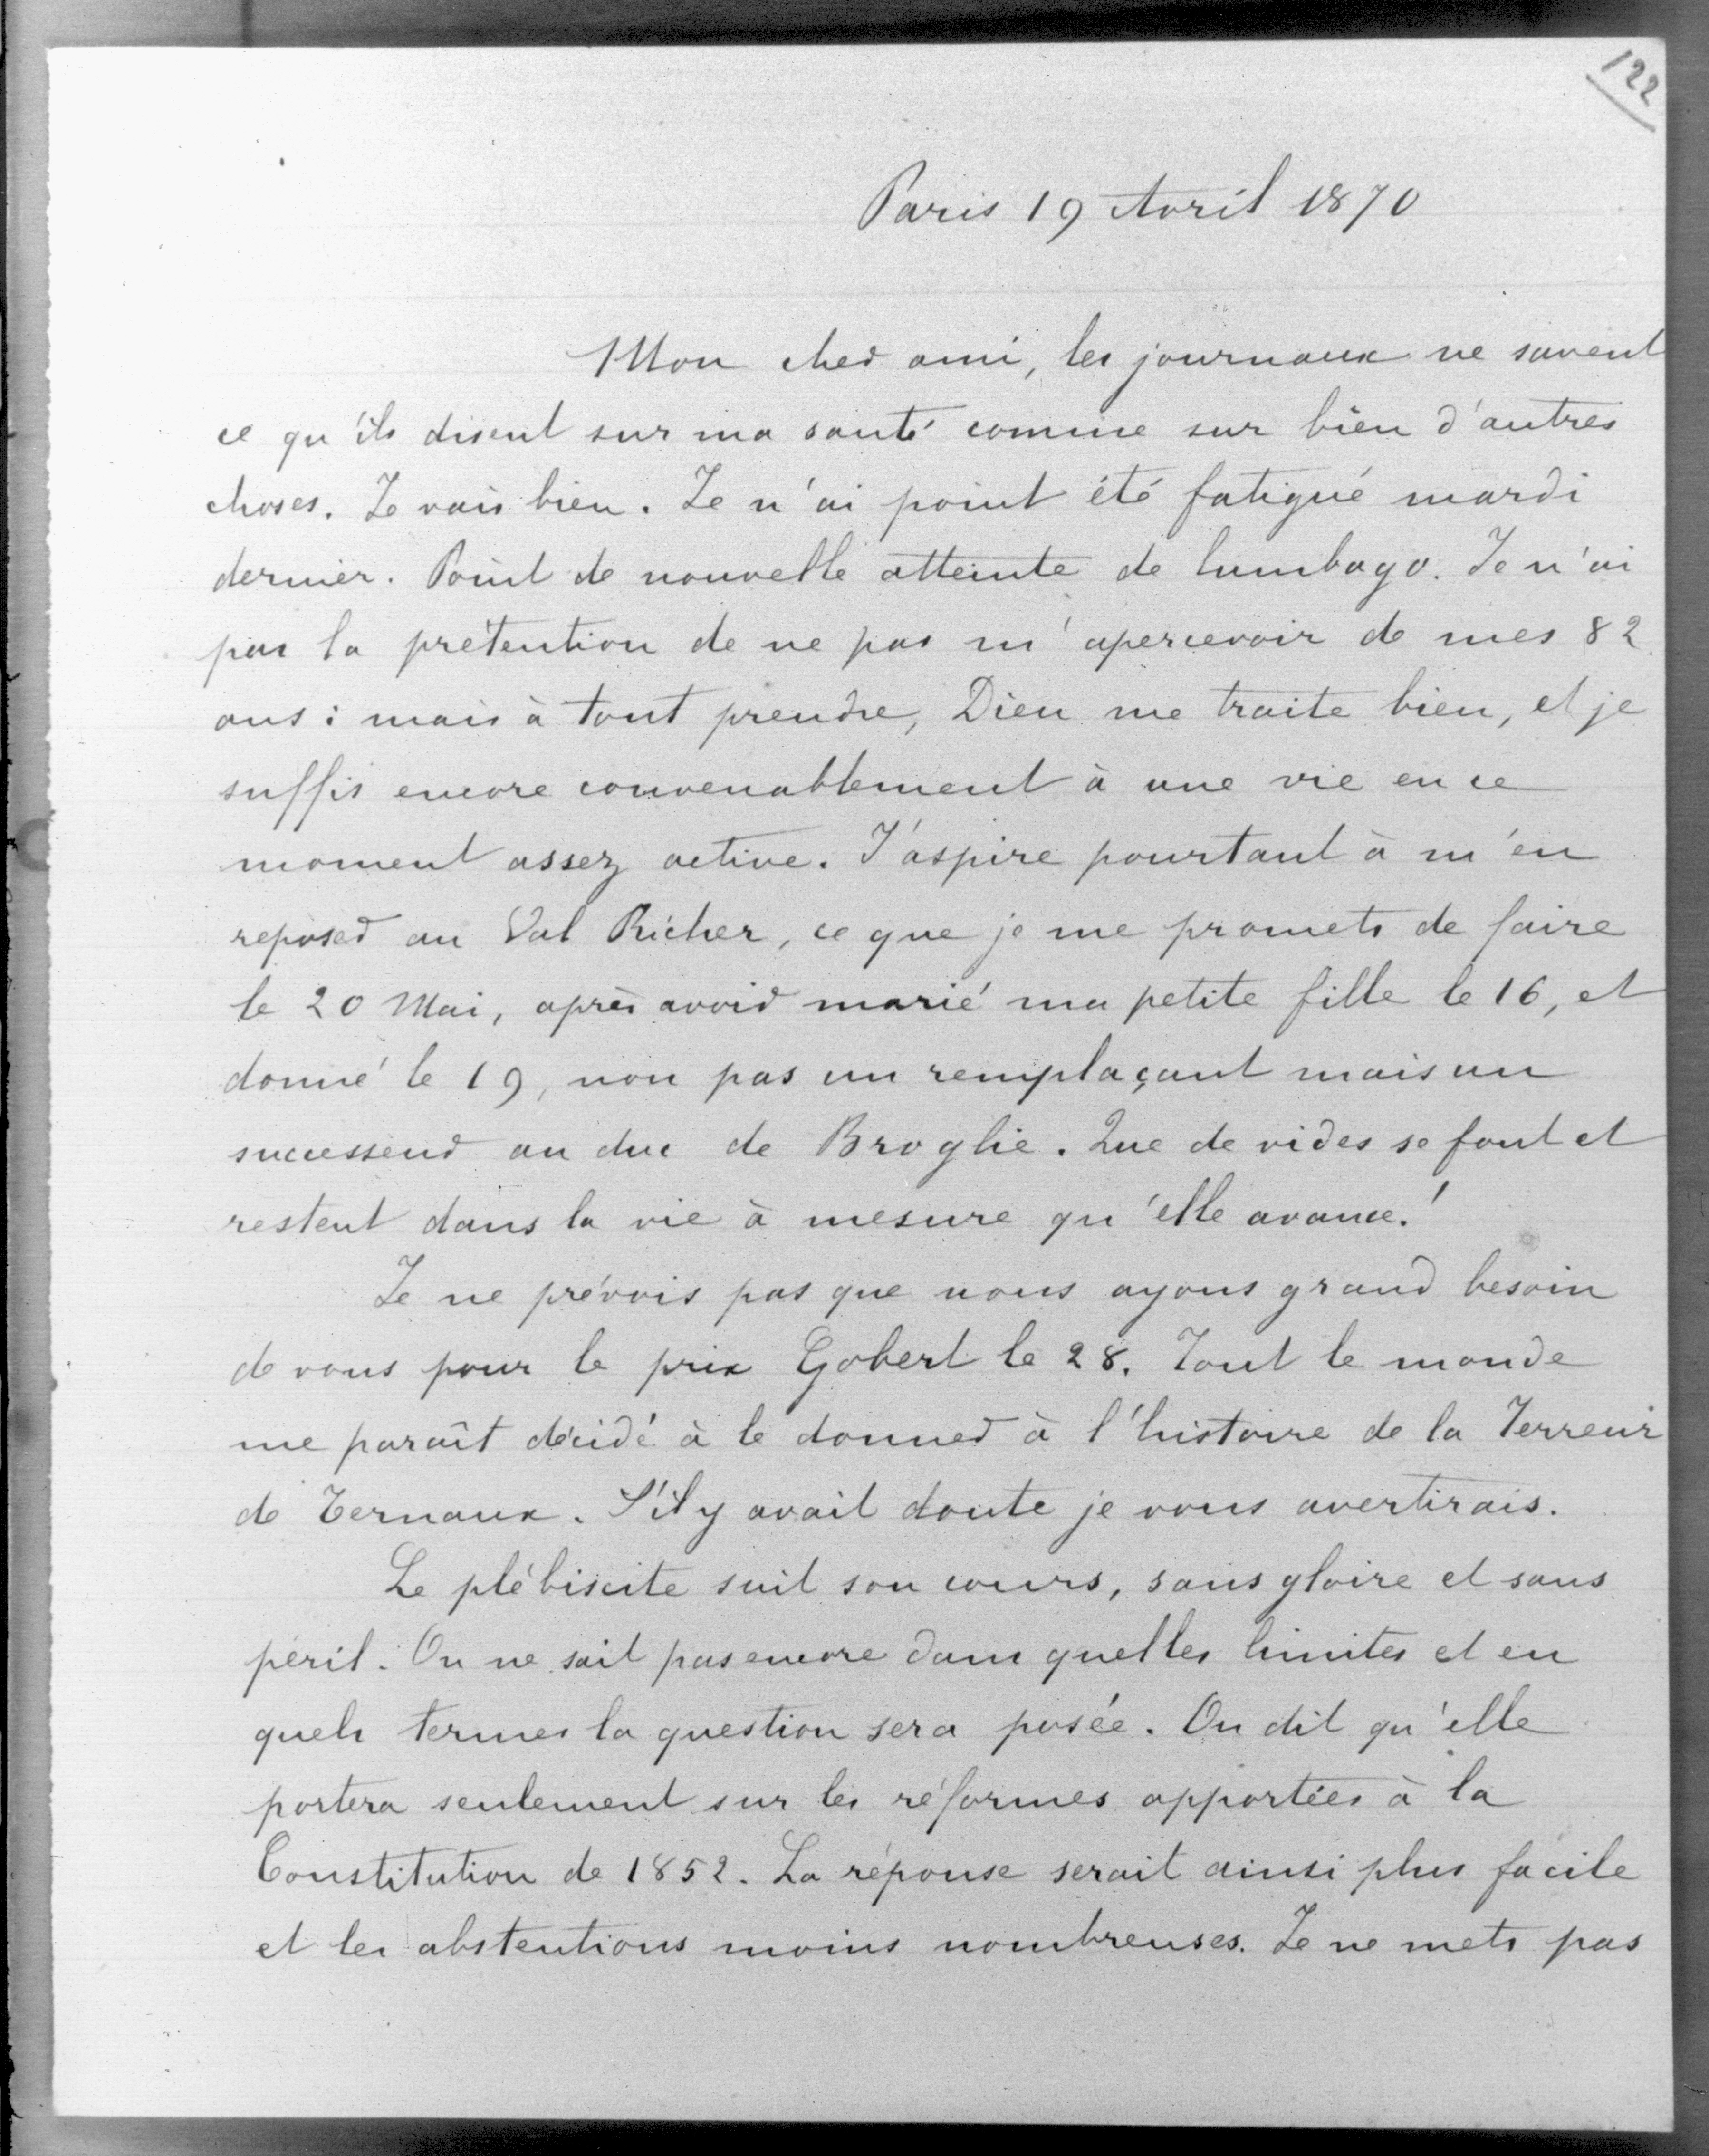 122
Paris 19 Avril 1870
Mon cher ami, les journaux ne savent
ce qu'ils disent sur ma santé comme sur bien d'autres
choses. Je vais bien. Je n'ai point été fatigué mardi
dernier. Point de nouvelle atteinte de lumbago. Je n'ai
pas la prétention de ne pas m'apercevoir de mes 82
ans ; mais à tout prendre, Dieu me traite bien, et je
suffis encore convenablement à une vie en ce
moment assez active. J'aspire pourtant à m'en
reposer au Val Richer, ce que je me promets de faire
le 20 Mai, après avoir marié ma petite fille le 16, et
donné le 19, non pas un remplaçant mais un
successeur au duc de Broglie. Que de vides se font et
restent dans la vie à mesure qu'elle avance !
Je ne prévois pas que nous ayons grand besoin
de vous pour le prix Gobert le 28. Tout le monde
me paraît décidé à le donner à l'histoire de la Terreur
de Ternaux. S'il y avait doute je vous avertirais.
Le plébiscite suit son cours, sans gloire et sans
péril. On ne sait pas encore dans quelles limites et en
quels termes la question sera posée. On dit qu'elle
portera seulement sur les réformes apportées à la
Constitution de 1852. La réponse serait ainsi plus facile
et les abstentions moins nombreuses. Je ne mets pas